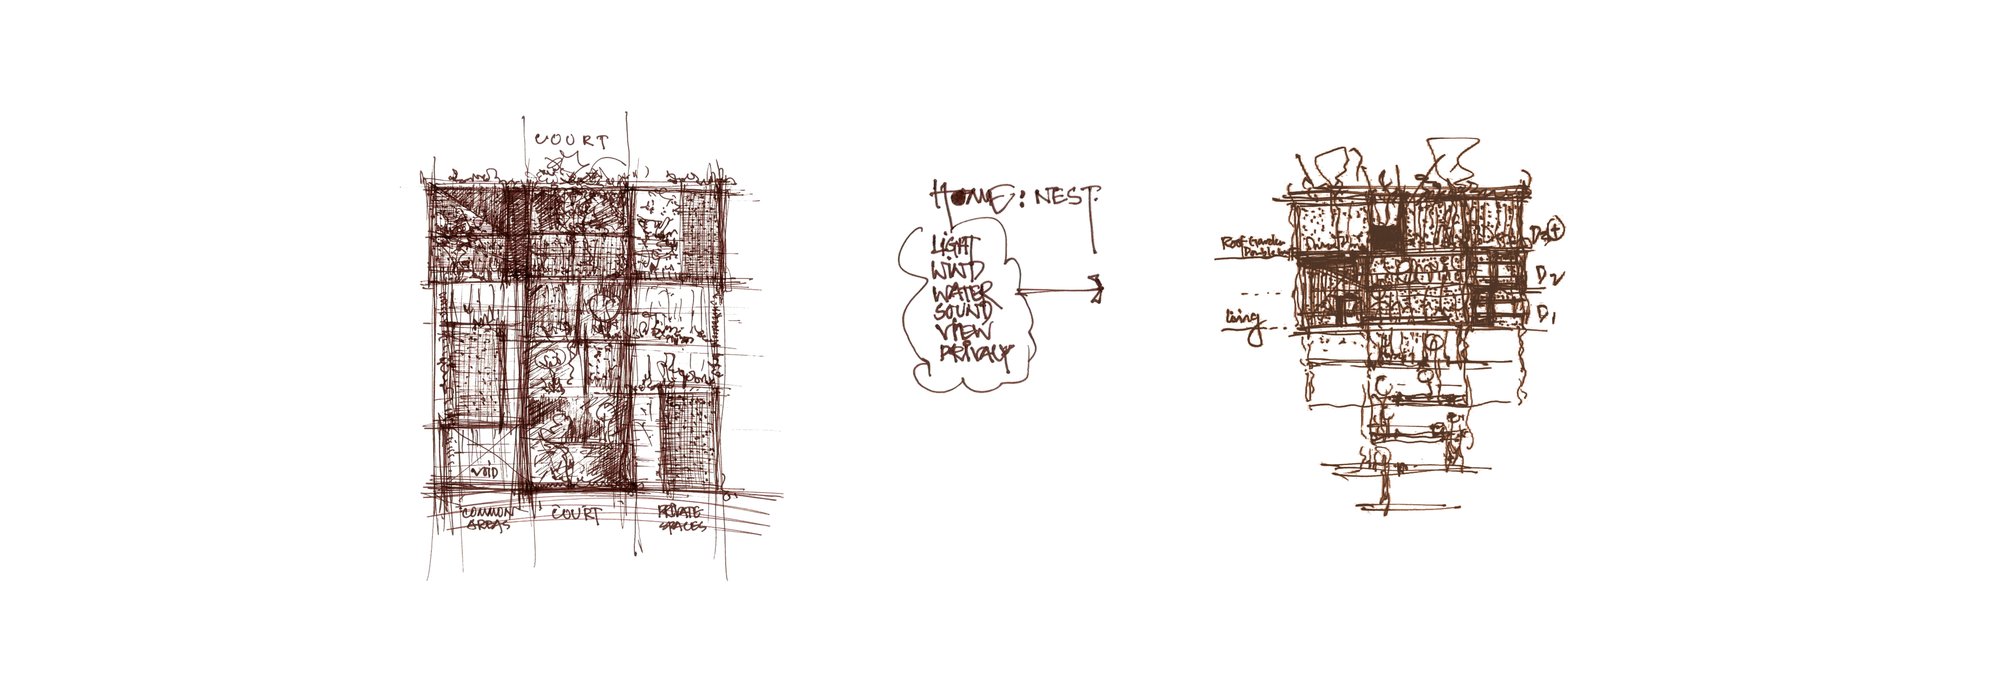 COURT
VOID
COMMON
AREAS
COURT
PRIVATE
SPACES
HOME: NEST.
LIGHT
WIND
WATER
SOUND
VIEW
PRIVACY
Roof Garden
living
D2
D1